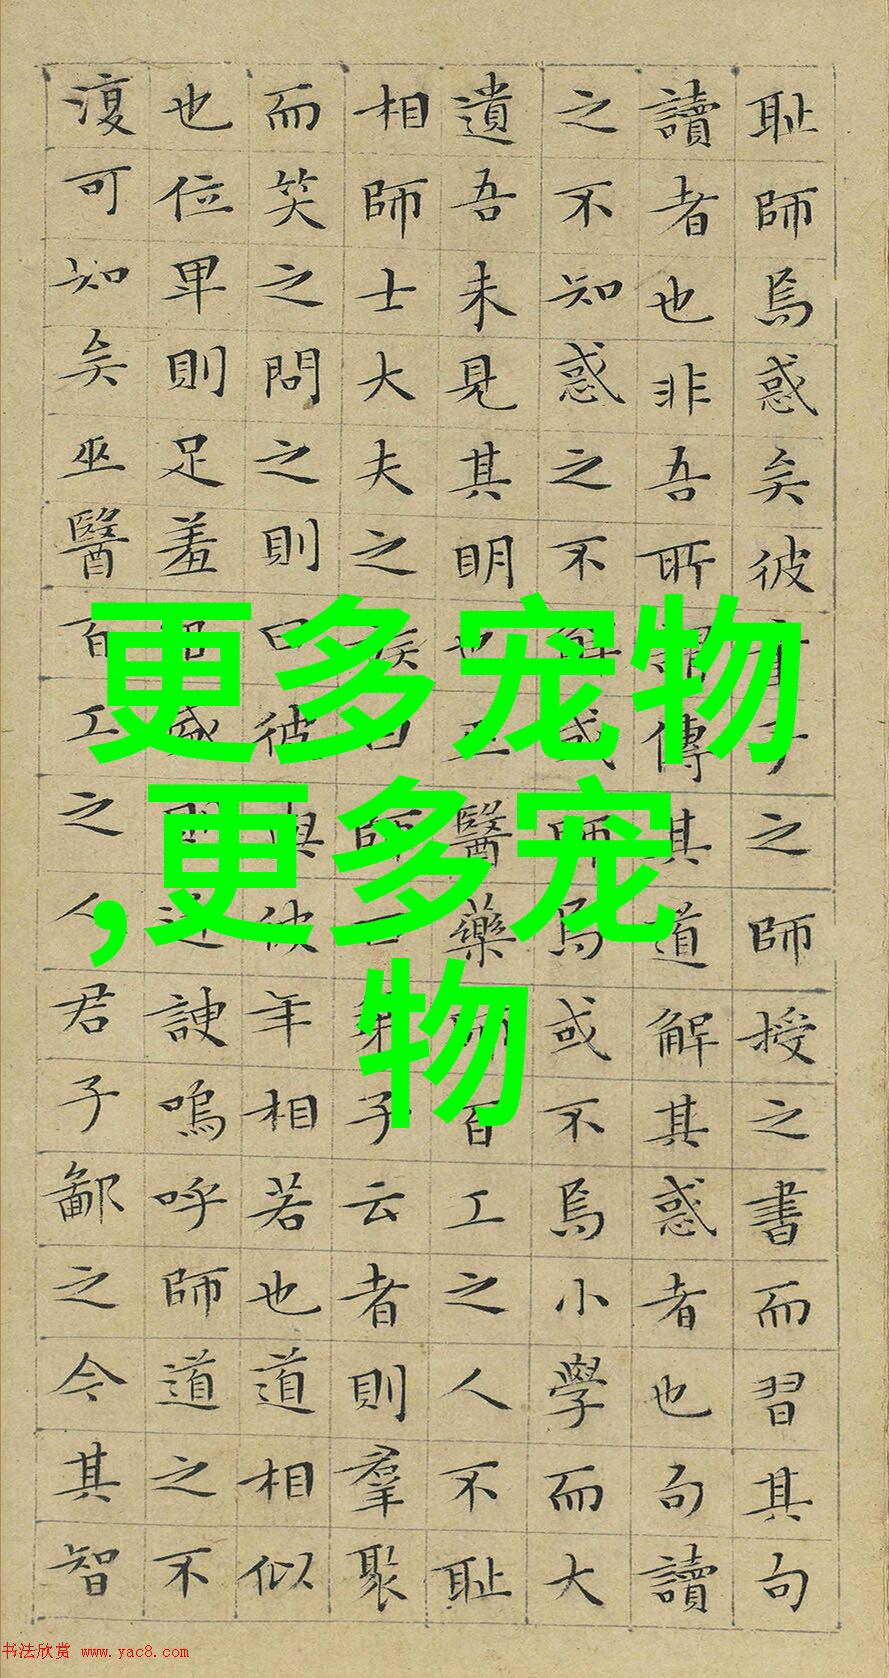 耻師焉惑矣彼童子之師授之書而習其句
讀者也非吾所謂傳其道解其惑者也句讀
之不知惑之不解或師焉或不焉小學而大
遺吾未見其明也巫醫藥師百工之人不耻
相師士大夫之族曰師曰弟子云者則羣聚
而笑之問之則曰彼與彼年相若也道相似
也位卑則足羞官盛則近諛嗚呼師道之不
復可知矣巫醫百工之人君子鄙之今其智
更多宠物
,更多宠
物
书法欣赏 www.yac8.com